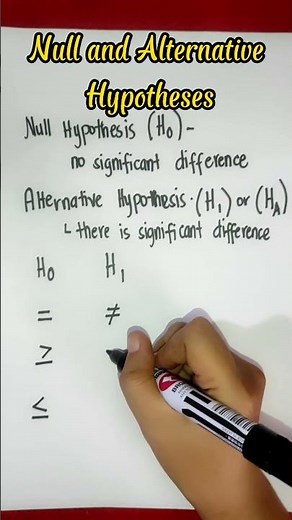 Null and Alternative
Hypotheses
Null Hypothesis (H₀) -
no significant difference
Alternative Hypothesis - (H₁) or (Hₐ)
↳ there is significant difference
H₀ H₁
= ≠
≥
≤